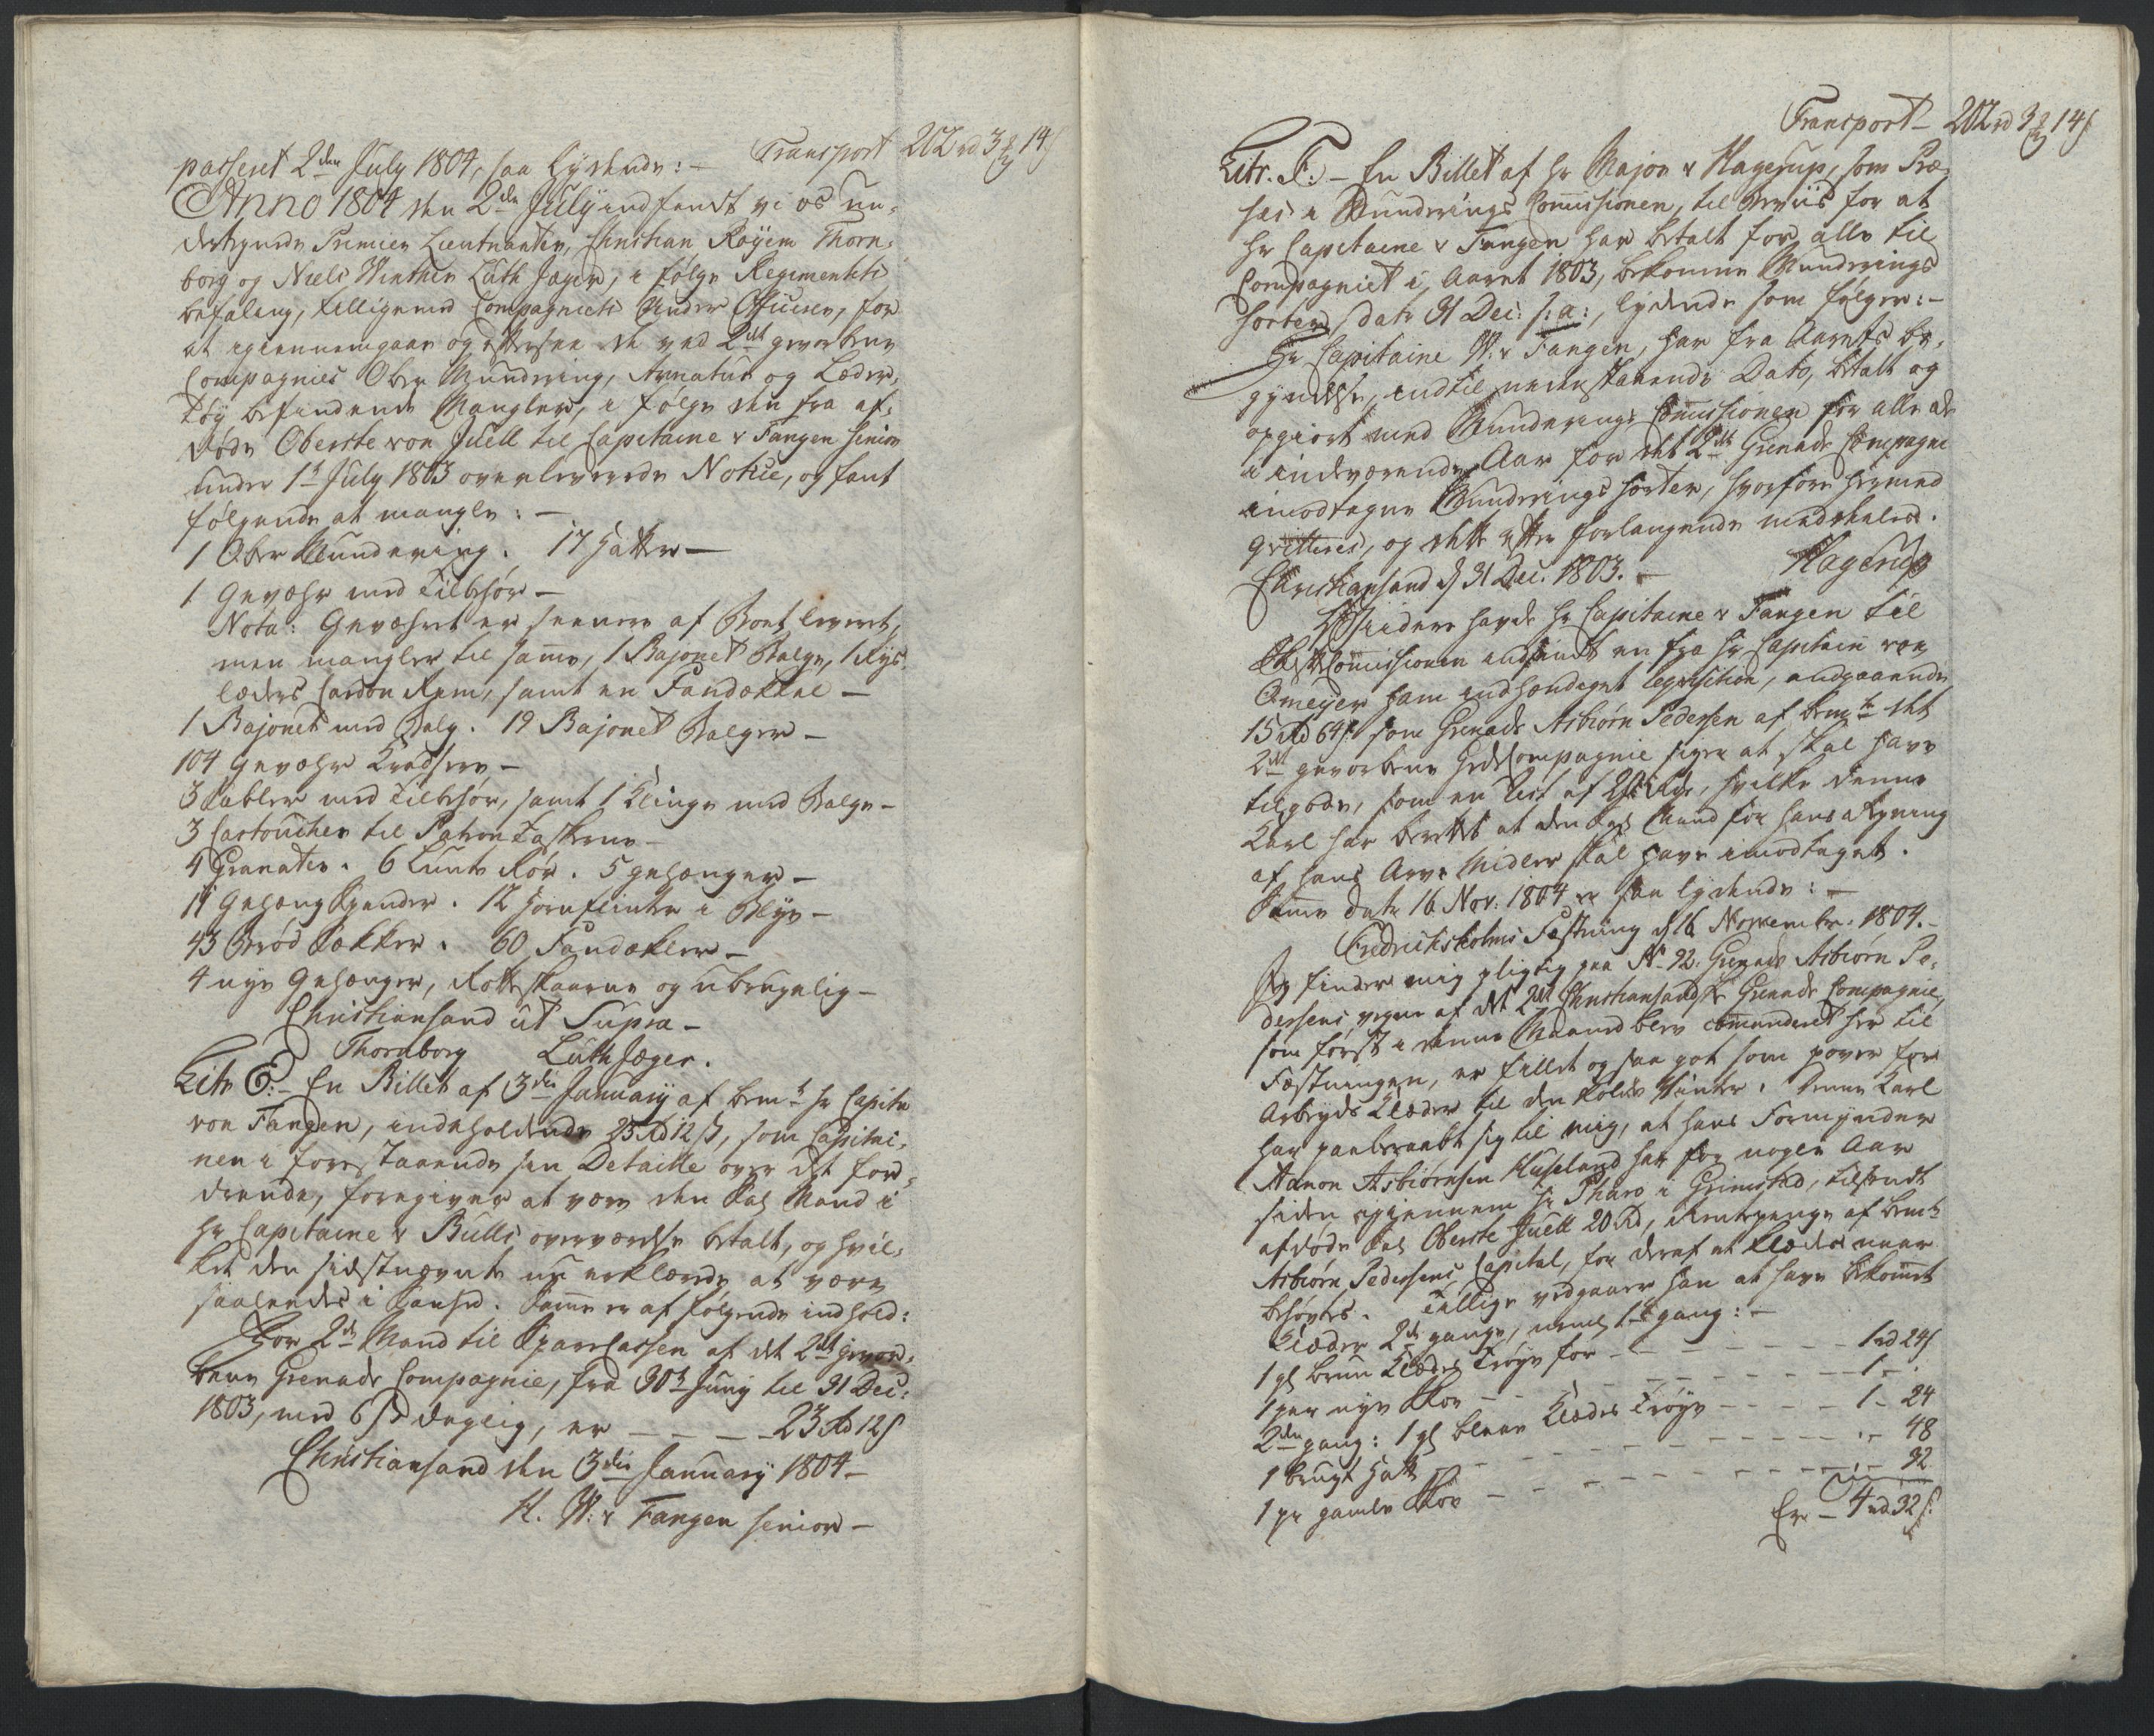 Transport 202 rd 3 ℔ 14 s
passeret 2den July 1804, saa lydende: –
Anno 1804 den 2den July indfandt vi os un-
dertegnede Premier Lieutnanter, Christian Röyem Thorn-
borg og Niels Winther Luth Jæger, i følge Regimentets
befaling, tilligemed Compagniets Under Officiere, for
at igiennemgaae og efftersee de ved 2det gevorbene
Compagnies Ober Mundering, Armatur og Læder-
tøy befindende Mangler, i følge den fra af-
døde Oberste von Juell til Capitaine v Fangen senior
under 1te July 1803 overleverede Notice, og fant
følgende at mangle: –
1 Ober Mundering. 17 Hatter –
1 Gevæhr med Tilbehør –
Nota: Gevæhret er seenere af Boet leveret,
men mangler til samme, 1 Bajonet Balge, 1 Rys-
læders Cardon Rem, samt en Fandækkel –
1 Bajonet med Balg. 19 Bajonet Balger –
104 Gevæhr Kradsere –
3 Sabler med Tilbehør, samt 1 Klinge med Balge –
3 Cartoucher til Patron Taskerne –
4 Granater. 6 Lunte Rör. 5 gehænger –
11 Gehæng Spender. 12 Hornflinter i Blye –
43 Brød Sækker. 60 Fandækler –
4 nye Gehænger, Rotteskaarne og ubrugelig –
Christiansand ut Supra –
Thornborg Luth Jæger.
Litr E: – En Billet af 3die January af bemte Hr Capitn
von Fangen, indeholdende 23 Rd 12 s, som Capitai-
nen i forestaaende sin Detaille over det for-
drende, foregiver at være den Sal Mand i
Hr Capitaine v Bulls overværelse betalt, og hvil-
ket den sidstnævnte nu erklærede at være
saaledes i Sanhed. Samme er af følgende indhold:
For 2de Mand til Sparecassen af det 2det gevor-
bene Grenade Compagnie, fra 30te Juny til 31 Dec:
1803, med 6 s daglig, er – – – – 23 Rd 12 s
Christiansand den 3die January 1804 –
H. W: v Fangen senior –

Transport – 202 rd 3 ℔ 14 s
Litr. F: – En Billet af Hr Major v Hagerup, som Præ-
ses i Munderings Commissionen, til Beviis for at
Hr Capitaine v Fangen har betalt for alle til
Compagniet i Aaret 1803, bekomne Munderings
Sorter, dato 31 Dec: s: a:, lydende som følger: –
Hr Capitaine W: v Fangen, har fra Aarets be-
gyndelse, indtil nedenstaaende Dato, betalt og
opgiort med Munderings Commissionen for alle de
i indeværende Aar for det 2det Grenade Compagnie
imodtagne Munderings Sorter, hvorfore hermed
qvitteres, og dette efter forlangende meddeeles.
Christiansand d 31 Dec. 1803. – Hagerup
Wiidere havde Hr Capitaine v Fangen til
Commissionen indsendt en fra Hr Capitain von
Omeyer ham indhændiget reqvisition, angaaende
15 Rd 64 s som Grenade Asbiørn Pedersen af bemte det
2det gevorbene Gr. Compagnie siger at skal have
tilgode, som en Rest af 20 Rdr, hvilke denne
Karl har berettet at den Sal Mand for hans Regning
af hans Arve Midler skal have imodtaget.
Samme dato 16 Nov. 1804 er saa lydende: –
Fredriksholms Festning d 16 November 1804. –
Jeg finder mig pligtig paa No 92. Grenade Asbiørn Pe-
dersens vegne af det 2det Christiansandske Grenade Compagnie,
som først i denne Maaned blev commanderet her til
Fæstningen, er fillet og saa got som paver for
Arbeyds Klæder til den kolde Vinter. Denne Karl
har paaberaabt sig til mig, at hans Formynder
Aanon Asbiørnsen Huseland har for nogle Aar
siden igiennem Hr Pharo i Grimstad, tilsendt
afdøde Sal Oberste Juell 20 Rd, Rentepenge af bemte
Asbiørn Pedersens Capital, for deraf at klædes naar
behøves. Tillige vedgaaer han at have bekommet
Klæder 2de gange, neml 1te gang: –
1 gl brun Klædes Trøye for – – – – – – 1 rd 24 s
1 par nye Skoe – – – – – – 1 – „
2den gang: 1 gl blaae Klædes Trøye – – – – 1 – 24
1 brugt Hatt – – – – – – „ – 48
1 pr gamle Skoe – – – – – – „ – 32
Er – 4 rd 32 s: